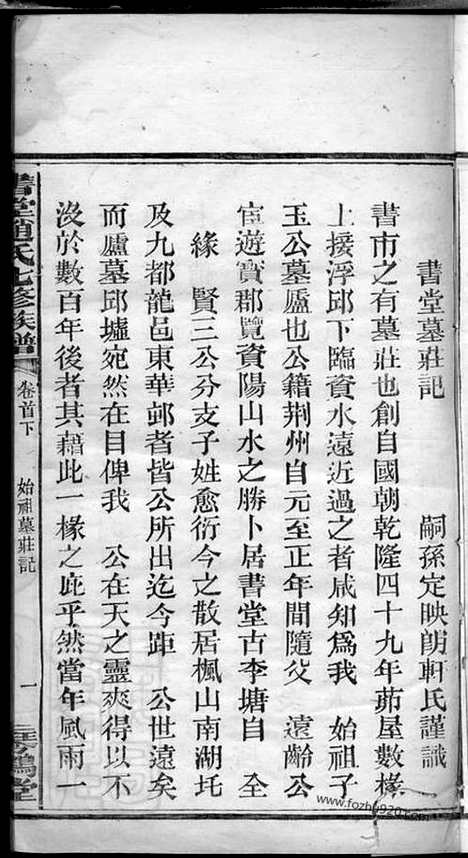 書堂墓莊記
嗣孫定映朗軒氏謹識
書市之有墓莊也創自國朝乾隆四十九年茆屋數椽
上接浮邱下臨資水遠近過之者咸知爲我 始祖子
玉公墓廬也公籍荆州自元至正年間隨父 遠齡公
宦遊寶郡覽資陽山水之勝卜居書堂古李塘自 全
緣 賢三公分支子姓愈衍今之散居楓山南湖圫
及九都龍邑東華邨者皆公所出迄今距 公世遠矣
而廬墓邱墟宛然在目俾我 公在天之靈爽得以不
沒於數百年後者其藉此一椽之庇乎然當年風雨一
書堂趙氏七修族譜
卷首下
始祖墓莊記
一
琴鶴堂
www.fozhu920.com